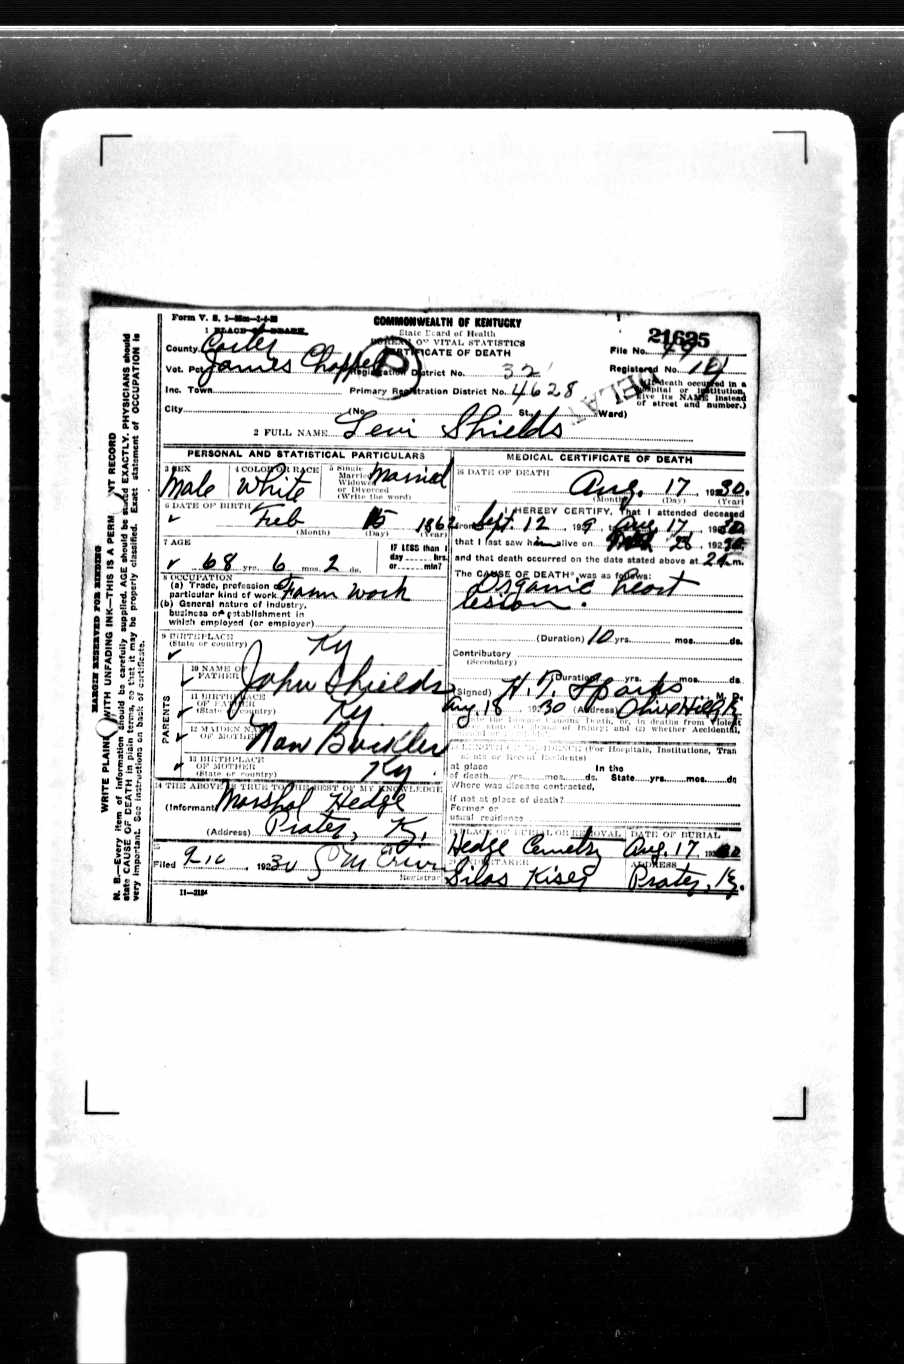 Form V. S. 1
1 PLACE OF DEATH
COMMONWEALTH OF KENTUCKY
State Board of Health
BUREAU OF VITAL STATISTICS
CERTIFICATE OF DEATH
21635
File No.
County Carter
Vot. Pct. James Chappel
Registration District No. 32
Registered No.
Inc. Town
Primary Registration District No. 4628
(If death occurred in a
hospital or institution,
give its NAME instead
of street and number.)
City (No. St., Ward)
2 FULL NAME Levi Shields
PERSONAL AND STATISTICAL PARTICULARS
3 SEX Male
4 COLOR OR RACE White
5 Single
Married
Widowed
or Divorced
(Write the word) Married
6 DATE OF BIRTH Feb 15 1862
(Month) (Day) (Year)
7 AGE
68 yrs. 6 mos. 2 ds.
IF LESS than 1
day hrs.
or min?
8 OCCUPATION
(a) Trade, profession or
particular kind of work Farm work
(b) General nature of industry,
business or establishment in
which employed (or employer)
9 BIRTHPLACE
(State or country) Ky
PARENTS
10 NAME OF
FATHER John Shields
11 BIRTHPLACE
OF FATHER
(State or country) Ky
12 MAIDEN NAME
OF MOTHER Nan Buckler
13 BIRTHPLACE
OF MOTHER
(State or country) Ky
14 THE ABOVE IS TRUE TO THE BEST OF MY KNOWLEDGE
(Informant) Marshal Hedge
(Address) Prater, Ky.
15
Filed 9-10, 1930
Registrar
11—3184
MEDICAL CERTIFICATE OF DEATH
16 DATE OF DEATH
Aug. 17, 1930.
(Month) (Day) (Year)
17 I HEREBY CERTIFY, That I attended deceased
from Sept. 12, 1929 to Aug 17, 1930
that I last saw him alive on 28, 1930
and that death occurred on the date stated above at 2 A.m.
The CAUSE OF DEATH* was as follows:
Organic heart
lesion.
(Duration) 10 yrs. mos. ds.
Contributory
(Secondary)
(Duration) yrs. mos. ds
(Signed) H. T. Sparks M. D.
Aug. 18 1930 (Address) Olive Hill, K
at place
of death yrs. mos. ds.
In the
State yrs. mos. ds
Where was disease contracted,
if not at place of death?
Former or
usual residence
19 PLACE OF BURIAL OR REMOVAL
Hedge Cemetery
DATE OF BURIAL
Aug. 17, 1930
20 UNDERTAKER
Silas Kiser
ADDRESS
Prater, Ky.
MARGIN RESERVED FOR BINDING
WRITE PLAINLY WITH UNFADING INK—THIS IS A PERM NT RECORD
N. B.—Every item of information should be carefully supplied. AGE should be stated EXACTLY. PHYSICIANS should
state CAUSE OF DEATH in plain terms, so that it may be properly classified. Exact statement of OCCUPATION is
very important. See instructions on back of certificate.